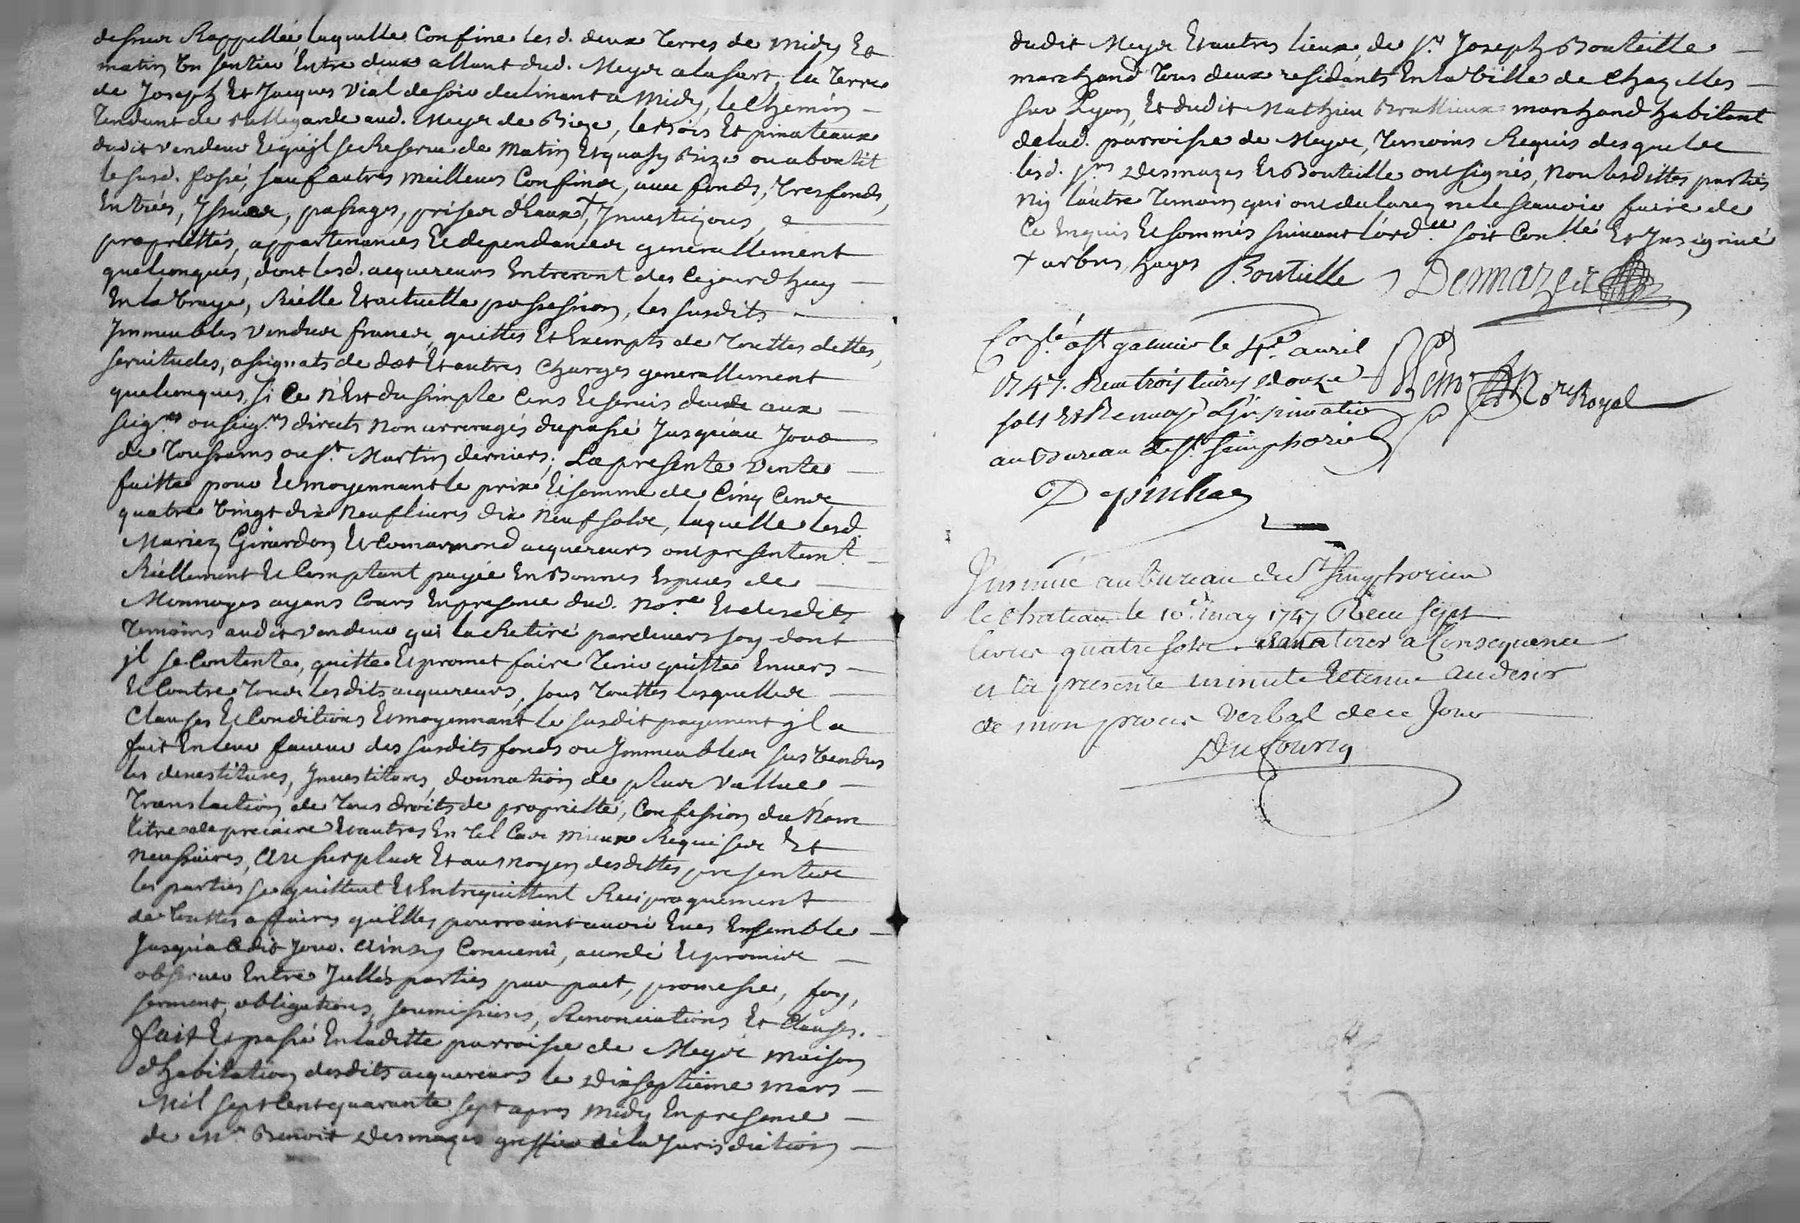 dessus Rappellée laquelle Confine lesd. deux Terres de midy Et
matin Un sentier Entre deux allant dud. Meyse a la sart, la Terre
de Joseph Et Jacques Vial de soir declinant a Midy, le Chemin
Tendant de Bellegarde aud. Meyse de Bize, le Bois Et pinateaux
dudit vendeur Et qu'jl se Reserve de Matin Et quasy Bize ou aboutit
le susd. fossé, sauf autres meilleurs Confins, avec fonds, Tresfonds,
Entrées, Jssues, passages, prises d'Eaux +, Jnvestizons, &
proprietés, appartenances Et dependances generallement
quelconques, dont lesd. acquereurs Entreront des Ce jourd'huy
En la Vraye, Réelle Et actuelle possession, les susdits
Jmmeubles Vendus francs, quittes Et Exempts de Touttes dettes,
servitudes, asignats de dot Et autres Charges generallement
quelconques, si Ce N'Est du simple Cens Et servis deude aux
seig.rs ou seig.rs directs non arreragés du passé Jusqu'au Jour
de Toussaints ou St. Martin derniers. La presente Vente
faitte pour Et moyennant le prix Et somme de Cinq Cent
quatre Vingt dix Neuf livres dix Neuf sols, laquelle lesd.
Mariez Girardon Et Comarmond acquereurs ont presentem.t
Réellement Et Comptant payée En Bonnes Especes de
Monnoyes ayans Cours En presence dud. No.re Et desdits
Temoins audit vendeur qui la Retiré par devers soy dont
jl se Contente, quitte Et promet faire Tenir quitte Envers
Et Contre Tous lesdits acquereurs, sous Touttes lesquelles
Clauses Et Conditions Et moyennant le susdit payement jl a
fait En leur faveur des susdits fonds ou Jmmeubles sus Vendus
les devestitures, Jnvestitures, donnation de plus Vallue,
Translation de Tous droits de proprietté, Confession du Nom
titre de preciaire Et autres En tel Cas mieux Requises Et
necessaires, Au surplus Et au moyen desdittes presentes
les parties se quittent Et Entrequittent Reciproquement
de Touttes affaires qu'Elles pourroient avoir Eues Ensemble
Jusqu'a Cedit Jour. Ainsy Convenû, accordé Et promis
observer Entre Jcelles parties par pact, promesse, foy,
serment, obligations, soumissions, Renonciations Et Clauses.
fait Et passé En laditte parroisse de Meyse maison
d'habitation desdits acquereurs le Dixseptieme mars
Mil sept Cent quarante sept apres midy En presence
de Me. Benoit Desmazes greffier de la Jurisdiction
dudit Meyse Et autres lieux, de Sr. Joseph Bouteille
marchand Tous deux residants En la Ville de Chazelles
sur Lyon, Et dudit Mathieu marchand habitant
de lad. parroisse de Meyse, Temoins Requis desquels
lesd. Srs. Desmazes Et Bouteille ont signés, Non lesdittes parties
Ny l'autre Temoin qui ont declarez ne le sçavoir faire de
Ce Enquis Et sommés suivant l'ord.ce soit Con.llé Et Jnsignué
+ arbres, hayes Bouteille Desmazes
Con.lé a St galmier le 4e. avril
1747. Receu trois livres Douze No.re Royal
sols Et Renvoyé l'Jnsinuation
au Bureau de St. Simphorien
Depinhac
Jnsinué au bureau de St. Simphorien
le Chateau le 10e. may 1747 Receu sept
livres quatre sols a Consequence
et la presente minute Retenue au desir
de mon procès Verbal de ce Jour
Dufourcq